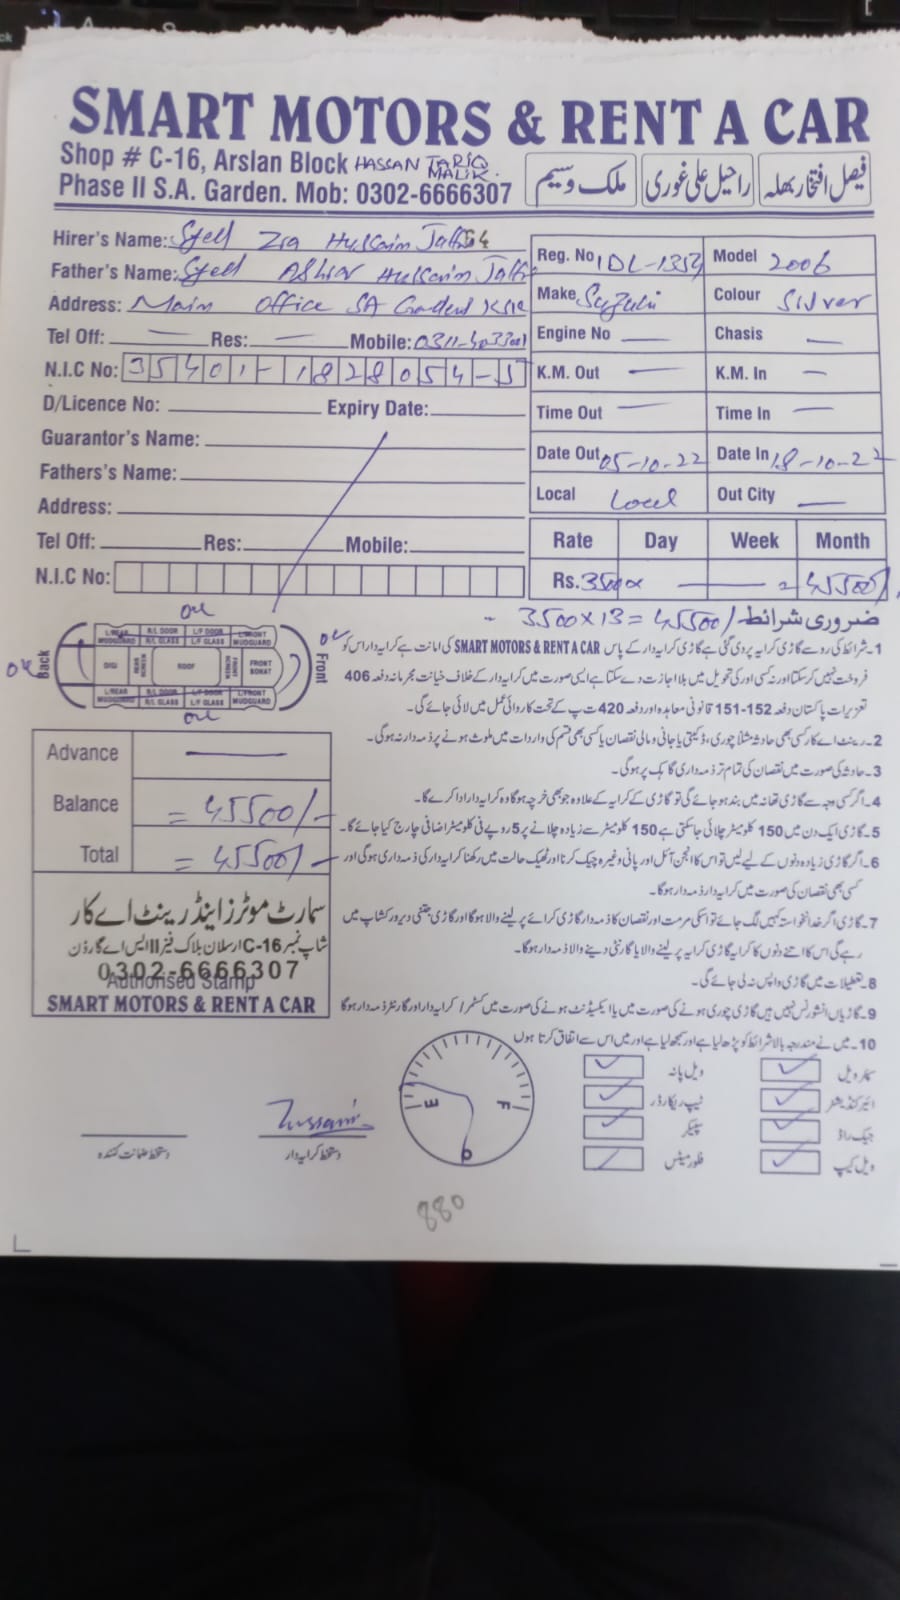 SMART MOTORS & RENT A CAR
Shop # C-16, Arslan Block HASSAN TARIQ MALIK.
Phase II S.A. Garden. Mob: 0302-6666307
فیصل افتخار بھلہ راحیل علی غوری ملک وسیم
Hirer's Name: Syed Zia Hussain
Father's Name: Syed Hussain
Address: Main Office SA
Tel Off: — Res: — Mobile:
N.I.C No: 35401-1828054-5
D/Licence No: Expiry Date:
Guarantor's Name:
Fathers's Name:
Address:
Tel Off: Res: Mobile:
N.I.C No:
Reg. No IDL-1354 Model 2006
Make Suzuki Colour Silver
Engine No — Chasis —
K.M. Out — K.M. In —
Time Out — Time In —
Date Out 05-10-22 Date In 18-10-22
Local Local Out City —
Rate Day Week Month
Rs. 3500x — = 45500/
ضروری شرائط 3500 x 13 = 45500/-
ok
ok Back
L/REAR MUDGUARD R/L DOOR R/L GLASS L/F DOOR L/F GLASS L/FRONT MUDGUARD
DIGI ROOF FRONT SCREEN FRONT BONAT
L/REAR MUDGUARD R/L DOOR R/L GLASS L/F DOOR L/F GLASS L/FRONT MUDGUARD
Front ok
ok
1۔شرائط کی رو سے گاڑی کرایہ پر دی گئی ہے گاڑی کرایہ دار کے پاس SMART MOTORS & RENT A CAR کی امانت ہے کرایہ دار اس کو
فروخت نہیں کر سکتا اور نہ کسی اور کی تحویل میں بلا اجازت دے سکتا ہے ایسی صورت میں کرایہ دار کے خلاف خیانت مجرمانہ دفعہ 406
تعزیرات پاکستان دفعہ 152-151 قانونی معاہدہ اور دفعہ 420 ت پ کے تحت کاروائی عمل میں لائی جائے گی۔
2۔رینٹ اے کار کسی بھی حادثہ مثلاً چوری، ڈکیتی یا جانی و مالی نقصان یا کسی بھی قسم کی واردات میں ملوث ہونے پر ذمہ دار نہ ہوگی۔
3۔حادثہ کی صورت میں نقصان کی تمام تر ذمہ داری گاہک پر ہوگی۔
4۔اگر کسی وجہ سے گاڑی تھانہ میں بند ہو جائے گی تو گاڑی کے کرایہ کے علاوہ جو بھی خرچہ ہوگا وہ کرایہ دار ادا کرے گا۔
5۔گاڑی ایک دن میں 150 کلومیٹر چلائی جاسکتی ہے 150 کلومیٹر سے زیادہ چلانے پر 5 روپے فی کلومیٹر اضافی چارج کیا جائے گا۔
6۔اگر گاڑی زیادہ دنوں کے لیے لیں تو اس کا انجن آئل اور پانی وغیرہ چیک کرنا اور ٹھیک حالت میں رکھنا کرایہ دار کی ذمہ داری ہوگی اور
کسی بھی نقصان کی صورت میں کرایہ دار ذمہ دار ہوگا۔
7۔گاڑی اگر خدانخواستہ کہیں لگ جائے تو اسکی مرمت اور نقصان کا ذمہ دار گاڑی کرائے پر لینے والا ہوگا اور گاڑی جتنی دیر ورکشاپ میں
رہے گی اس کا اتنے دنوں کا کرایہ گاڑی کرایہ پر لینے والا یا گارنٹی دینے والا ذمہ دار ہوگا۔
8۔تعطیلات میں گاڑی واپس نہ لی جائے گی۔
9۔گاڑیاں انشورنس نہیں ہیں گاڑی چوری ہونے کی صورت میں یا ایکسیڈنٹ ہونے کی صورت میں کسٹمر / کرایہ دار اور گارنٹر ذمہ دار ہوگا
10۔میں نے مندرجہ بالا شرائط کو پڑھ لیا ہے اور سمجھ لیا ہے اور میں اس سے اتفاق کرتا ہوں
Advance —
Balance = 45500/-
Total = 45500/-
سمارٹ موٹرز اینڈ رینٹ اے کار
شاپ نمبر C-16 ارسلان بلاک فیز II ایس اے گارڈن
0302-6666307
Authorised Stamp
SMART MOTORS & RENT A CAR
سٹپر ویل ویل پانہ
ائیر کنڈیشنر ٹیپ ریکارڈر
جیک راڈ سپیکر
ویل کیپ فلور میٹس
E F
Hussain
دستخط کرایہ دار دستخط ضمانت کنندہ
880